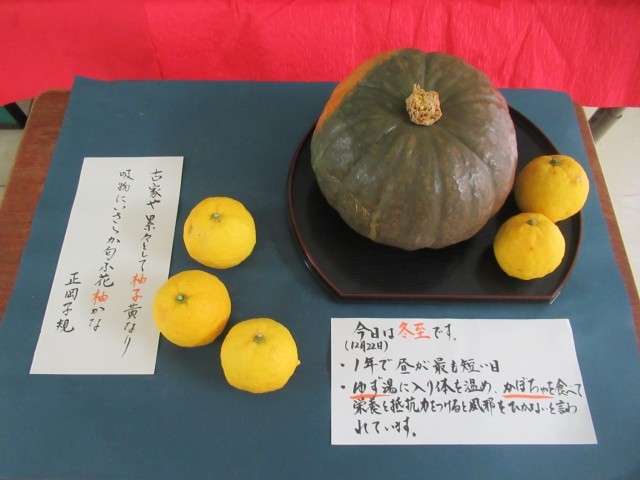 古家や累々として柚子黄なり
吸物にいさゝか匂ふ花柚かな
正岡子規
今日は冬至です。
(12月22日)
・1年で昼が最も短い日
・ゆず湯に入り体を温め、かぼちゃを食べて
栄養と抵抗力をつけると風邪をひかないと言わ
れています。